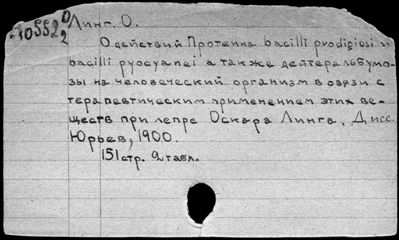 10552 0/2
Линг. О.
О действии Протеина bacilli prodigiosi и
bacilli pyocyanei а также дейтеральбумо-
зы на человеческий организм в связи с
терапевтическим применением этих ве-
ществ при лепре Оскара Линга. Дисс.
Юрьев, 1900.
151 стр. 2 табл.